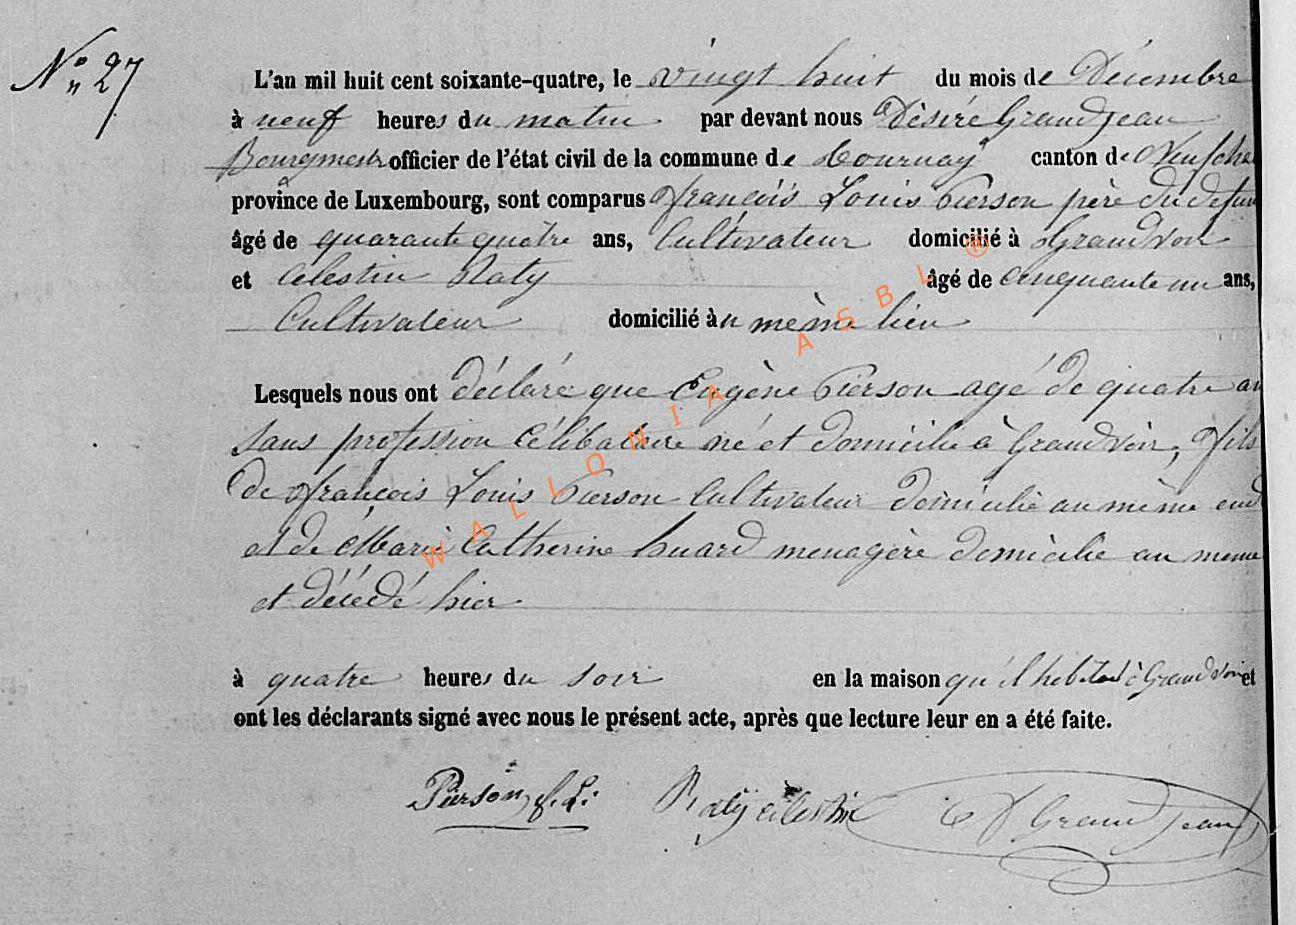 N° 27
L'an mil huit cent soixante-quatre, le vingt huit du mois de Décembre
à neuf heures du matin par devant nous Désiré Grandjean
Bourgmestre officier de l'état civil de la commune de Tournay canton de Neufcha
province de Luxembourg, sont comparus François Louis Pierson père du defun
âgé de quarante quatre ans, Cultivateur domicilié à Grandvoir
et Celestin Raty âgé de cinquante un ans,
Cultivateur domicilié au même lieu
Lesquels nous ont déclaré que Eugène Pierson agé de quatre an
sans profession célibataire né et domicilié à Grandvoir, fils
de François Louis Pierson Cultivateur domicilié au même end
et de Marie Catherine Huard menagère domicilie au meme
et décédé hier
à quatre heures du soir en la maison qu'il habitait à Grandvoir et
ont les déclarants signé avec nous le présent acte, après que lecture leur en a été faite.
Pierson f. L. Raty celestin D Grandjean
WALLONIA ASBL ®